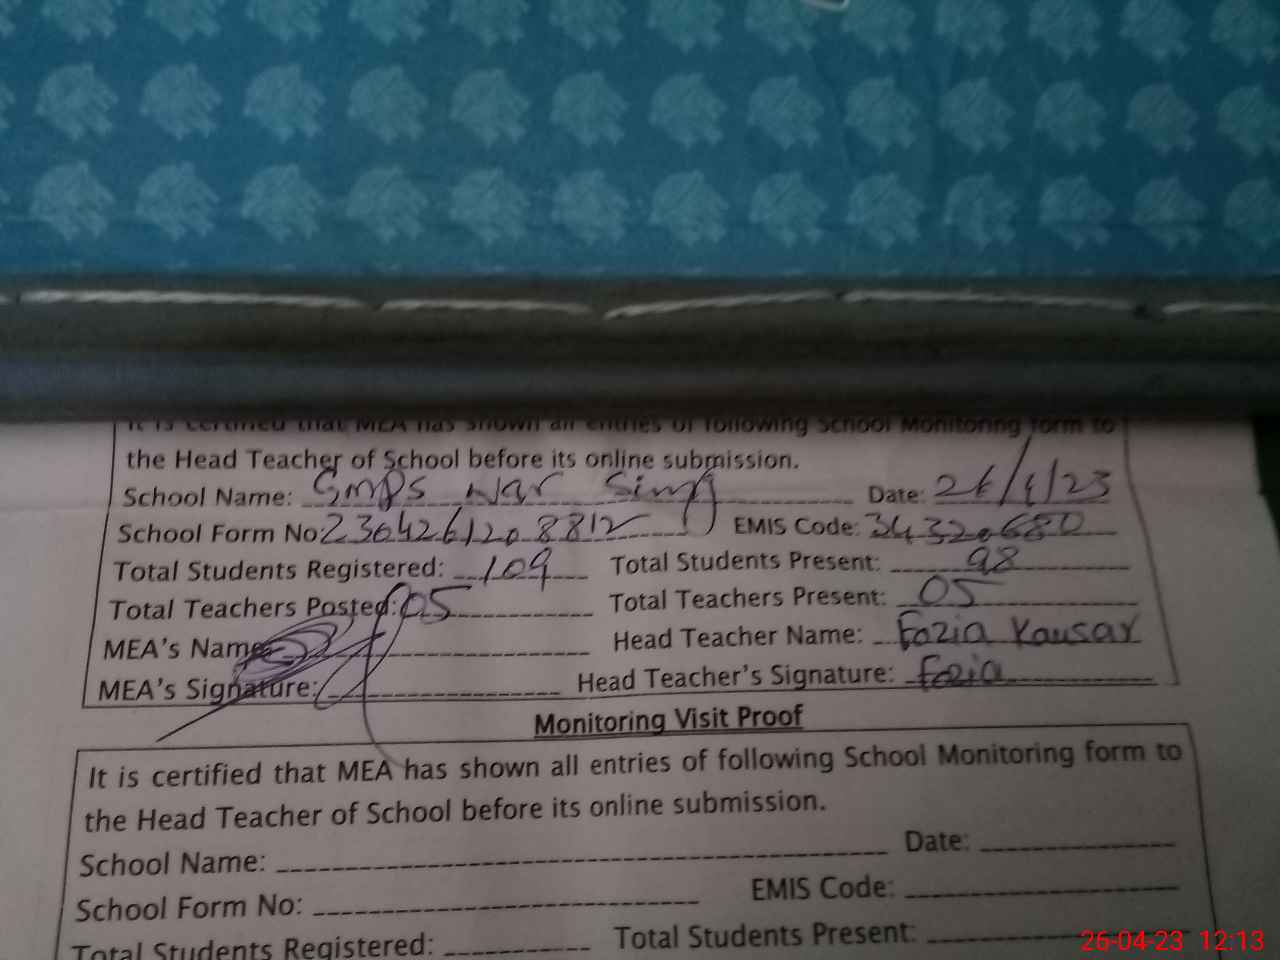 It is certified that MEA has shown all entries of following School Monitoring form to
the Head Teacher of School before its online submission.
School Name: GMPS Nar Sing Date: 26/4/23
School Form No: 2304261208812 EMIS Code: 34320680
Total Students Registered: 109 Total Students Present: 98
Total Teachers Posted: 05 Total Teachers Present: 05
MEA's Name: Head Teacher Name: Fozia Kausar
MEA's Signature: Head Teacher's Signature: Fozia
Monitoring Visit Proof
It is certified that MEA has shown all entries of following School Monitoring form to
the Head Teacher of School before its online submission.
School Name: Date:
School Form No: EMIS Code:
Total Students Registered: Total Students Present:
26-04-23 12:13